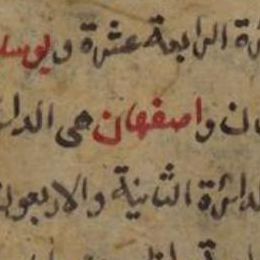 ئرة الرابعة عشرة و
ان واصفهان هى الدا
لدائرة الثانية والاربعو